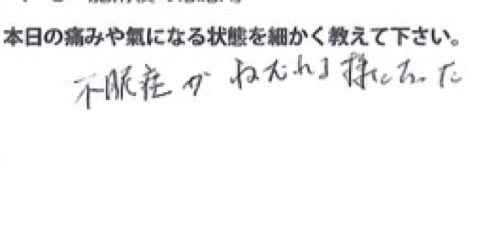 本日の痛みや氣になる状態を細かく教えて下さい。
不眠症がねむれる様になった